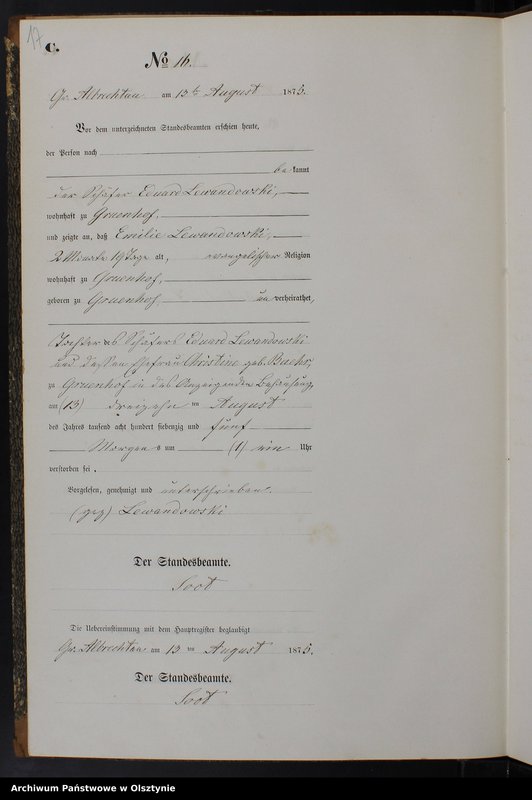 17
C.
No 16.
Gr. Albrechtau am 13ten August 1875.
Vor dem unterzeichneten Standesbeamten erschien heute,
der Person nach
bekannt
der Schäfer Eduard Lewandowski,
wohnhaft zu Gruenhof,
und zeigte an, daß Emilie Lewandowski,
2 Monate 19 Tage alt, evangelischer Religion
wohnhaft zu Gruenhof,
geboren zu Gruenhof, unverheirathet,
Tochter des Schäfers Eduard Lewandowski
und dessen Ehefrau Christine geb.
zu Gruenhof in des Anzeigenden Behausung,
am (13) dreizehn ten August
des Jahres tausend acht hundert siebenzig und fünf
Morgens um (1) ein Uhr
verstorben sei.
Vorgelesen, genehmigt und unterschrieben.
(gez) Lewandowski
Der Standesbeamte.
Soot
Die Uebereinstimmung mit dem Hauptregister beglaubigt
Gr. Albrechtau am 13 ten August 1875.
Der Standesbeamte.
Soot
Archiwum Państwowe w Olsztynie